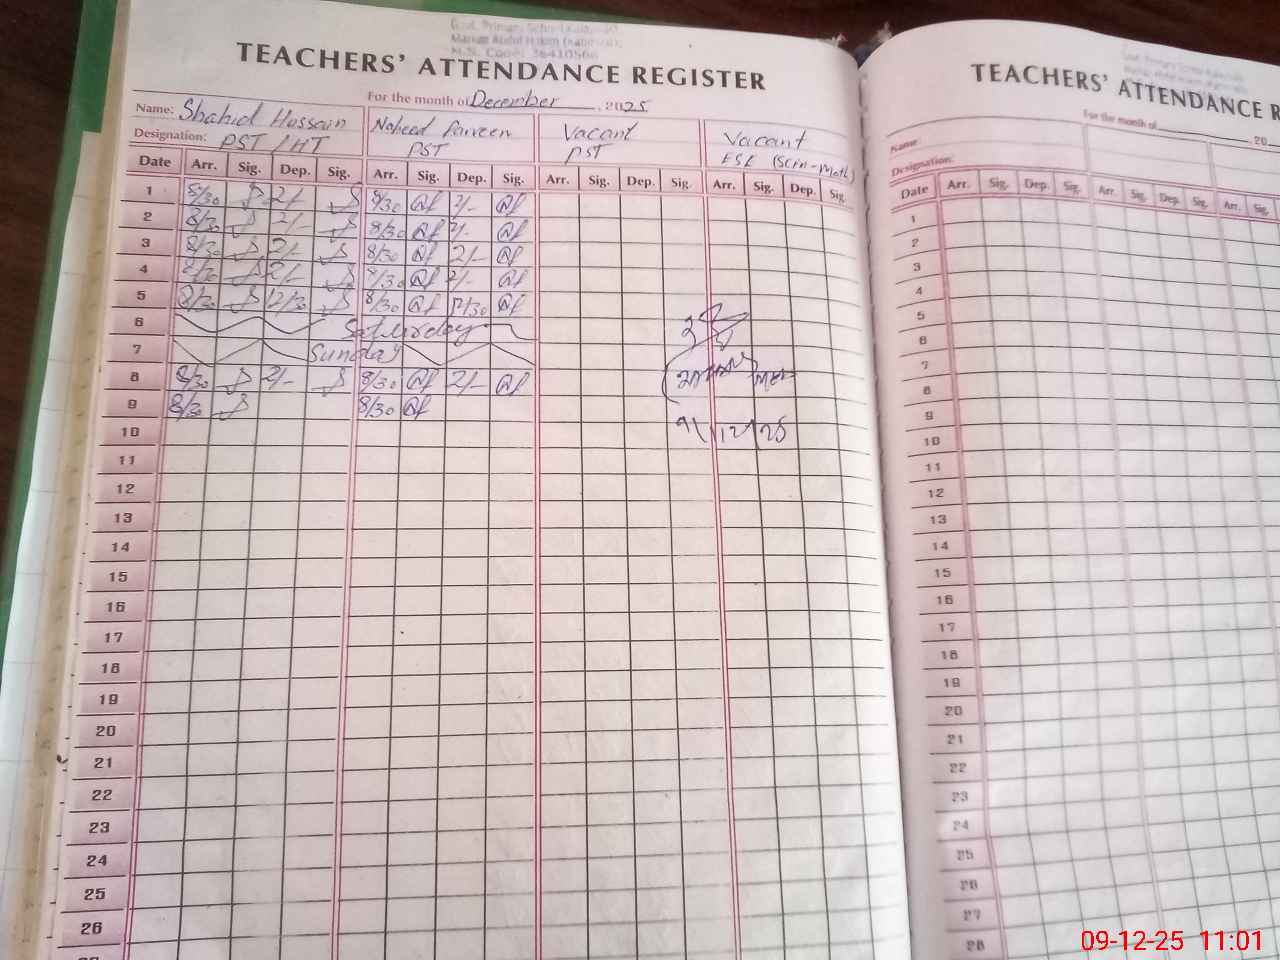 Govt. Primary School
Markaz Abdul Hakim (Kabirwala)
TEACHERS' ATTENDANCE REGISTER
For the month of December, 2025
Name: Shahid Hussain Naheed Parveen Vacant Vacant
Designation: PST / HT PST PST ESE (Scin-Math)
Date Arr. Sig. Dep. Sig. Arr. Sig. Dep. Sig. Arr. Sig. Dep. Sig. Arr. Sig. Dep. Sig.
1 8/30 2/- 8/30 2/-
2 8/30 2/- 8/30 2/-
3 8/30 2/- 8/30 2/-
4 8/30 2/- 8/30 2/-
5 8/30 12/30 8/30 12/30
6 Saturday
7 Sunday
8 8/30 2/- 8/30 2/-
9 8/30 8/30
9/12/25
10
11
12
13
14
15
16
17
18
19
20
21
22
23
24
25
26
TEACHERS' ATTENDANCE R
For the month of 20
Name
Designation:
Date Arr. Sig. Dep. Sig. Arr. Sig. Dep. Sig. Arr. Sig.
1
2
3
4
5
6
7
8
9
10
11
12
13
14
15
16
17
18
19
20
21
22
23
24
25
26
27
28
09-12-25 11:01